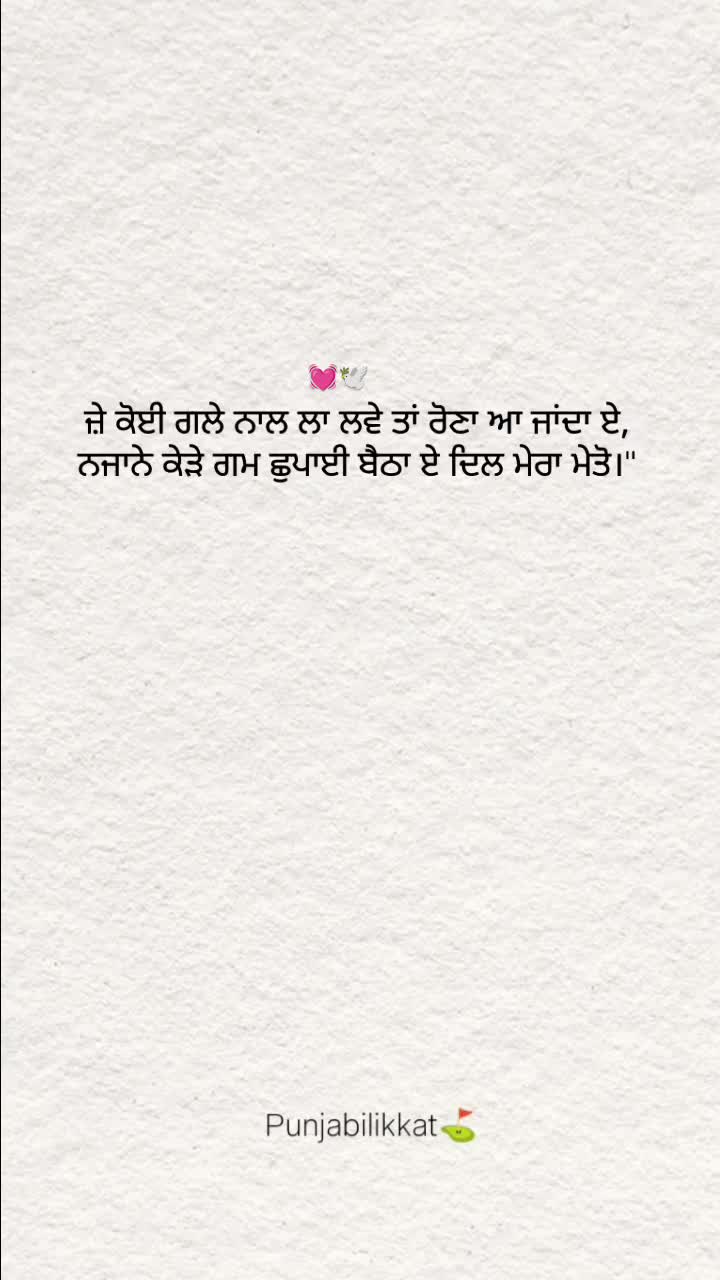 💓🕊️
ਜ਼ੇ ਕੋਈ ਗਲੇ ਨਾਲ ਲਾ ਲਵੇ ਤਾਂ ਰੋਣਾ ਆ ਜਾਂਦਾ ਏ,
ਨਜਾਨੇ ਕੇੜੇ ਗਮ ਛੁਪਾਈ ਬੈਠਾ ਏ ਦਿਲ ਮੇਰਾ ਮੇਤੋ।"
Punjabilikkat⛳